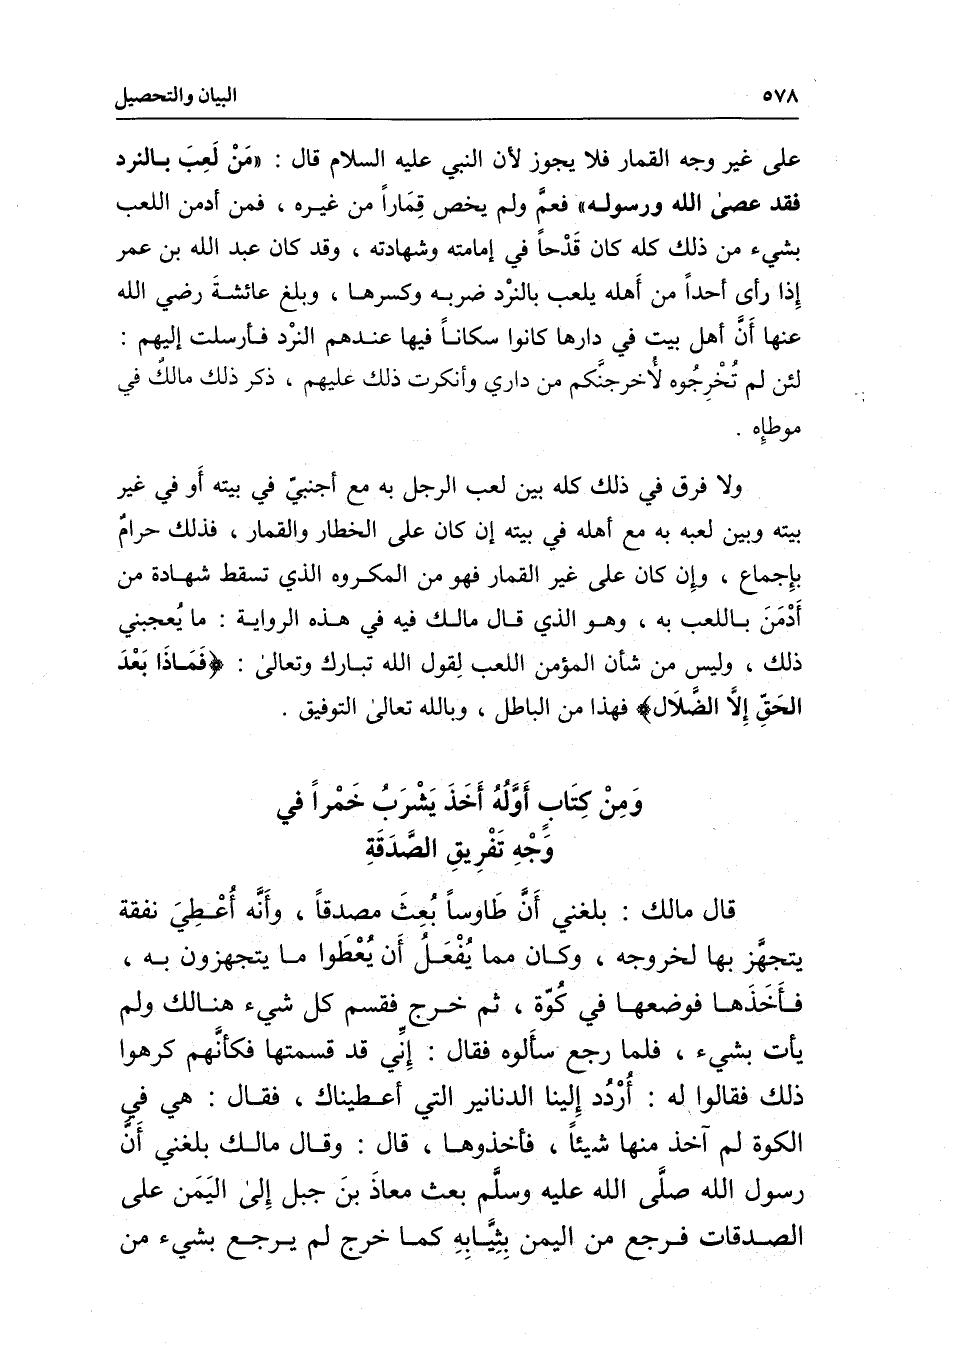 ٥٧٨ البيان والتحصيل
على غير وجه القمار فلا يجوز لأن النبي عليه السلام قال : «مَنْ لَعِبَ بـالنرد
فقد عصىٰ الله ورسولـه» فعمَّ ولم يخص قِمَاراً من غيـره ، فمن أدمن اللعب
بشيء من ذلك كله كان قَدْحاً في إمامته وشهادته ، وقد كان عبد الله بن عمر
إذا رأى أحداً من أهله يلعب بالنرْد ضربـه وكسرهـا ، وبلغ عائشـةَ رضي الله
عنها أنَّ أهل بيت في دارها كانوا سكانـاً فيها عنـدهم النرْد فـأرسلت إليهم :
لئن لم تُخْرِجُوه لأُخرجنَّكم من داري وأنكرت ذلك عليهم ، ذكر ذلك مالكٌ في
موطإِه .
ولا فرق في ذلك كله بين لعب الرجل به مع أجنبيّ في بيته أَو في غير
بيته وبين لعبه به مع أهله في بيته إن كان على الخطار والقمار ، فذلك حرامٌ
بإجماع ، وإن كان على غير القمار فهو من المكـروه الذي تسقط شهـادة من
أَدْمَنَ بـاللعب به ، وهـو الذي قـال مالـك فيه في هـذه الروايـة : ما يُعجبني
ذلك ، وليس من شأن المؤمن اللعب لِقول الله تبـارك وتعالىٰ : ﴿فَمَـاذَا بَعْدَ
الحَقِّ إِلاَّ الضَّلَال﴾ فهذا من الباطل ، وبالله تعالىٰ التوفيق .
وَمِنْ كِتَابٍ أَوَّلُهُ أَخَذَ يَشْرَبُ خَمْراً في
وَجْهِ تَفْرِيقِ الصَّدَقَةِ
قال مالك : بلغني أَنَّ طَاوساً بُعِثَ مصدقاً ، وأَنَّه أُعْـطِيَ نفقة
يتجهَّز بها لخروجه ، وكـان مما يُفْعَـلُ أَن يُعْطَوا مـا يتجهزون بـه ،
فـأَخَذَهـا فوضعهـا في كُوّة ، ثم خـرج فقسم كل شيء هنـالك ولم
يأت بشيء ، فلما رجع سأَلوه فقال : إنِّي قد قسمتها فكأنَّهم كرهوا
ذلك فقالوا له : أُرْدُد إلينا الدنانير التي أعـطيناك ، فقـال : هي في
الكوة لم آخذ منها شيئاً ، فأخذوهـا ، قال : وقـال مالـك بلغني أَنَّ
رسول الله صلَّى الله عليه وسلَّم بعث معاذَ بنَ جبل إلىٰ اليَمَن على
الصـدقات فـرجع من اليمن بِثِيَـابِهِ كمـا خرج لم يـرجـع بشيء من